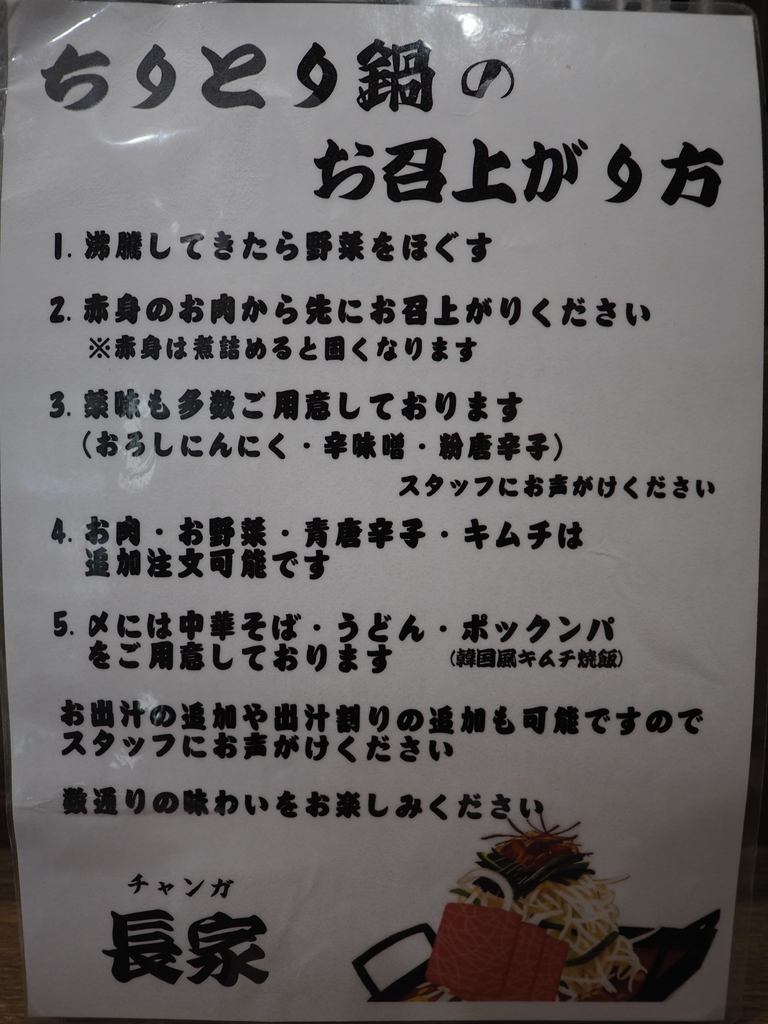 ちりとり鍋の
お召上がり方
1. 沸騰してきたら野菜をほぐす
2. 赤身のお肉から先にお召上がりください
※赤身は煮詰めると固くなります
3. 薬味も多数ご用意しております
（おろしにんにく・辛味噌・粉唐辛子）
スタッフにお声がけください
4. お肉・お野菜・青唐辛子・キムチは
追加注文可能です
5. 〆には中華そば・うどん・ポックンパ
をご用意しております （韓国風キムチ焼飯）
お出汁の追加や出汁割りの追加も可能ですので
スタッフにお声がけください
数通りの味わいをお楽しみください
チャンガ
長家